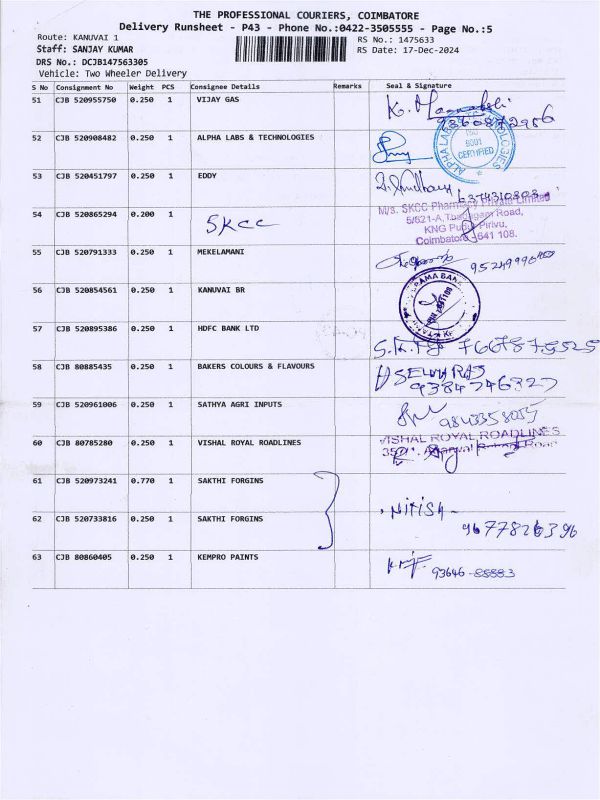 THE PROFESSIONAL COURIERS, COIMBATORE
Delivery Runsheet - P43 - Phone No.:0422-3505555 - Page No.:5
Route: KANUVAI 1
RS No.: 1475633
Staff: SANJAY KUMAR
RS Date: 17-Dec-2024
DRS No.: DCJB147563305
Vehicle: Two Wheeler Delivery
S No Consignment No Weight PCS Consignee Details Remarks Seal & Signature
51 CJB 520955750 0.250 1 VIJAY GAS
52 CJB 520908482 0.250 1 ALPHA LABS & TECHNOLOGIES
ISO 9001 CERTIFIED
53 CJB 520451797 0.250 1 EDDY
54 CJB 520865294 0.200 1 SKCC
M/s. SKCC Pharmacy Private Limited
5/621-A, Road,
KNG Pudur Pirivu,
Coimbatore 641 108.
55 CJB 520791333 0.250 1 MEKELAMANI
56 CJB 520854561 0.250 1 KANUVAI BR
57 CJB 520895386 0.250 1 HDFC BANK LTD
58 CJB 80885435 0.250 1 BAKERS COLOURS & FLAVOURS SELVARAJ
9384746327
59 CJB 520961006 0.250 1 SATHYA AGRI INPUTS
9843358055
60 CJB 80785280 0.250 1 VISHAL ROYAL ROADLINES VISHAL ROYAL ROADLINES
Road
61 CJB 520973241 0.770 1 SAKTHI FORGINS NITISH
62 CJB 520733816 0.250 1 SAKTHI FORGINS
63 CJB 80860405 0.250 1 KEMPRO PAINTS 93646-85883